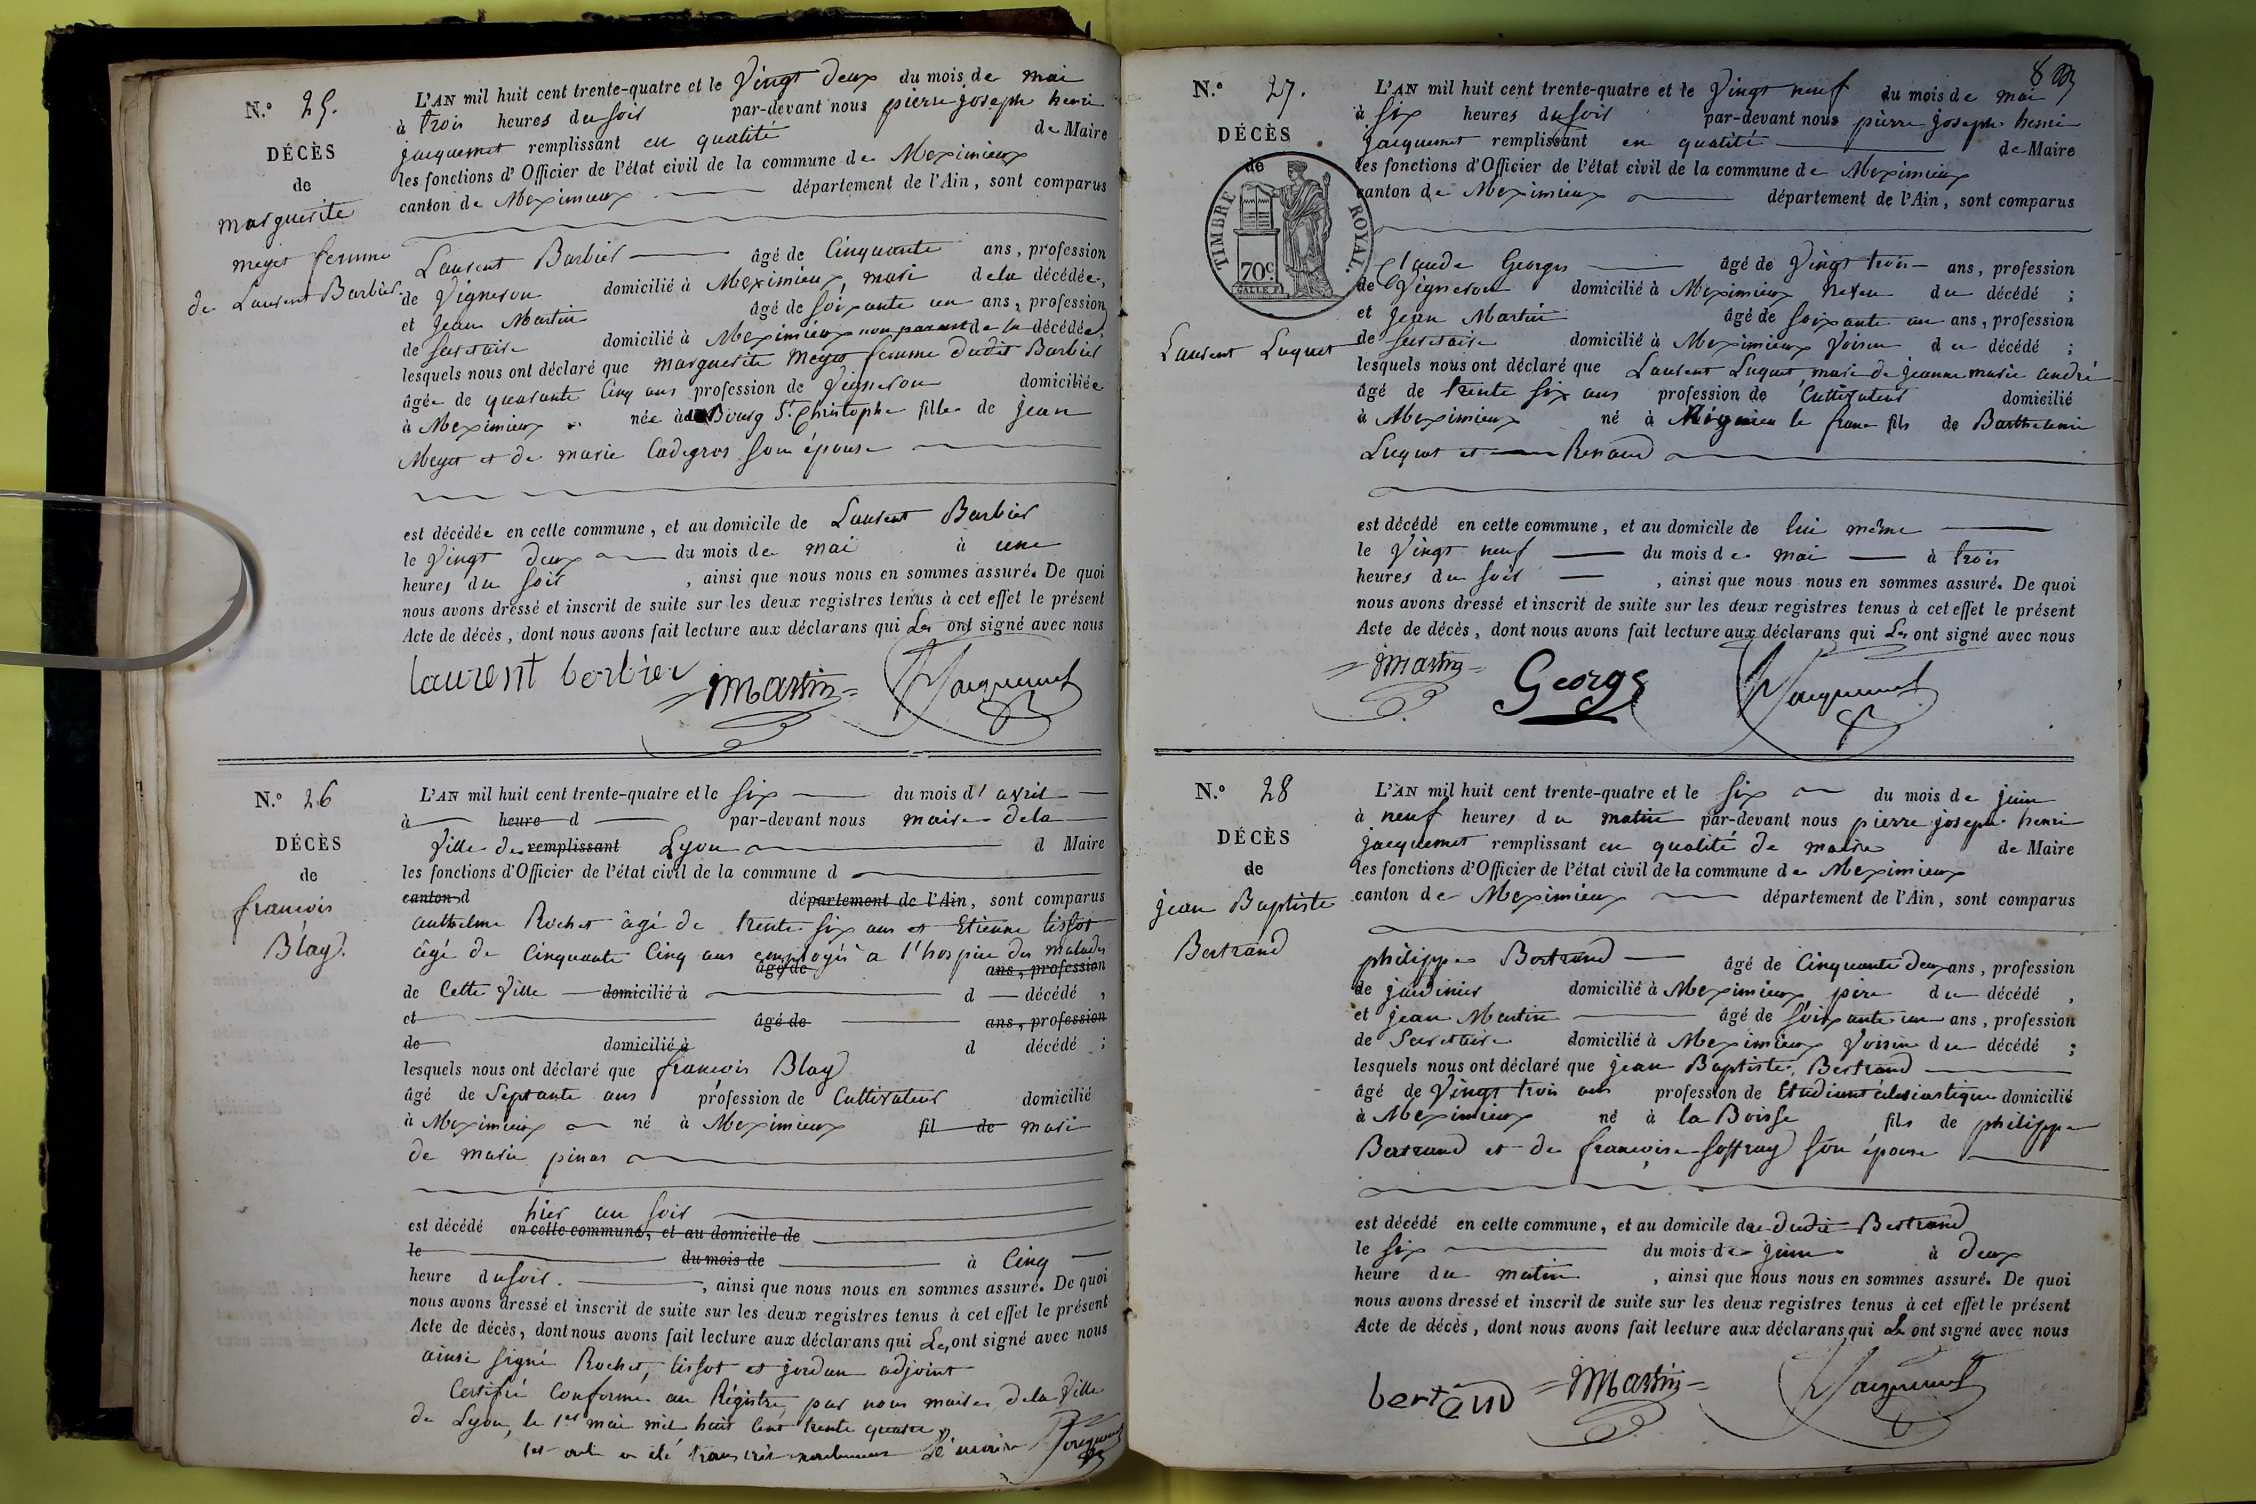 N.° 25.
DÉCÈS
de
marguerite
meyet femme
de Laurent Barbier
L'AN mil huit cent trente-quatre et le Vingt deux du mois de mai
à trois heures du soir par-devant nous pierre joseph henri
jacquemet remplissant en qualité de Maire
les fonctions d'Officier de l'état civil de la commune de Meximieux
canton de Meximieux département de l'Ain, sont comparus
Laurent Barbier âgé de Cinquante ans, profession
de Vigneron domicilié à Meximieux, mari dela décédée,
et Jean Martin âgé de soixante un ans, profession
de secretaire domicilié à Meximieux non parent de la décédée,
lesquels nous ont déclaré que marguerite Meyet femme dudit Barbier
âgée de quarante Cinq ans profession de Vigneron domiciliée
à Meximieux née à Bourg St. Christophe fille de jean
Meyet et de marie Cadegros son épouse
est décédée en cette commune, et au domicile de Laurent Barbier
le Vingt deux du mois de mai à une
heures du soir, ainsi que nous nous en sommes assuré. De quoi
nous avons dressé et inscrit de suite sur les deux registres tenus à cet effet le présent
Acte de décès, dont nous avons fait lecture aux déclarans qui Les ont signé avec nous
laurent borbier Martin Jacquemet
N.° 26
DÉCÈS
de
francois
Blay.
L'AN mil huit cent trente-quatre et le six du mois d'avril
à heure d par-devant nous maire dela
Ville de remplissant Lyon d Maire
les fonctions d'Officier de l'état civil de la commune d
canton d département de l'Ain, sont comparus
anthelme Rochet âgé de trente six ans et Etienne tissot
âgé de Cinquante Cinq ans employés à l'hospice des malades
âgé de ans, profession
de Cette Ville domicilié à d décédé,
et âgé de ans, profession
de domicilié à d décédé;
lesquels nous ont déclaré que francois Blay
âgé de Septante ans profession de Cultivateur domicilié
à Meximieux né à Meximieux fil de mari
de marie pinar
hier au soir
est décédé en cette commune, et au domicile de
le du mois de à Cinq
heure du soir., ainsi que nous nous en sommes assuré. De quoi
nous avons dressé et inscrit de suite sur les deux registres tenus à cet effet le présent
Acte de décès, dont nous avons fait lecture aux déclarans qui Les ont signé avec nous
ainsi signé Rochet, tissot et jordan adjoint
Certifié Conforme au Régistre par nous maire dela Ville
de Lyon, le 1er mai mil huit Cent trente quatre
a été Le maire Jacquemet
8
N.° 27.
DÉCÈS
de
TIMBRE ROYAL.
70c.
Laurent Luquet
L'AN mil huit cent trente-quatre et le Vingt neuf du mois de mai
à six heures du soir par-devant nous pierre joseph henri
jacquemet remplissant en qualité de Maire
les fonctions d'Officier de l'état civil de la commune de Meximieux
canton de Meximieux département de l'Ain, sont comparus
Claude Georges âgé de Vingt trois ans, profession
de Vigneron domicilié à Meximieux neveu du décédé;
et Jean Martin âgé de soixante un ans, profession
de secretaire domicilié à Meximieux Voisin du décédé;
lesquels nous ont déclaré que Laurent Luquet, mari de jeanne marie andré
âgé de trente six ans profession de Cultivateur domicilié
à Meximieux né à Rignieu le franc fils de Barthelemi
Luquet et Renaud
est décédé en cette commune, et au domicile de lui même
le Vingt neuf du mois de mai à trois
heures du soir, ainsi que nous nous en sommes assuré. De quoi
nous avons dressé et inscrit de suite sur les deux registres tenus à cet effet le présent
Acte de décès, dont nous avons fait lecture aux déclarans qui Les ont signé avec nous
Martin George Jacquemet
N.° 28
DÉCÈS
de
jean Baptiste
Bertrand
L'AN mil huit cent trente-quatre et le six du mois de juin
à neuf heures du matin par-devant nous pierre joseph henri
jacquemet remplissant en qualité de maire de Maire
les fonctions d'Officier de l'état civil de la commune de Meximieux
canton de Meximieux département de l'Ain, sont comparus
philippe Bertrand âgé de Cinquante deux ans, profession
de jardinier domicilié à Meximieux, pere du décédé,
et jean Martin âgé de soixante un ans, profession
de Secretaire domicilié à Meximieux Voisin du décédé;
lesquels nous ont déclaré que jean Baptiste Bertrand
âgé de Vingt trois ans profession de Etudiant éclésiastique domicilié
à Meximieux né à la Boisse fils de philippe
Bertrand et de francoise Soffray son épouse
est décédé en cette commune, et au domicile de dudit Bertrand
le six du mois de juin à deux
heure du matin, ainsi que nous nous en sommes assuré. De quoi
nous avons dressé et inscrit de suite sur les deux registres tenus à cet effet le présent
Acte de décès, dont nous avons fait lecture aux déclarans qui Les ont signé avec nous
bertrand Martin Jacquemet